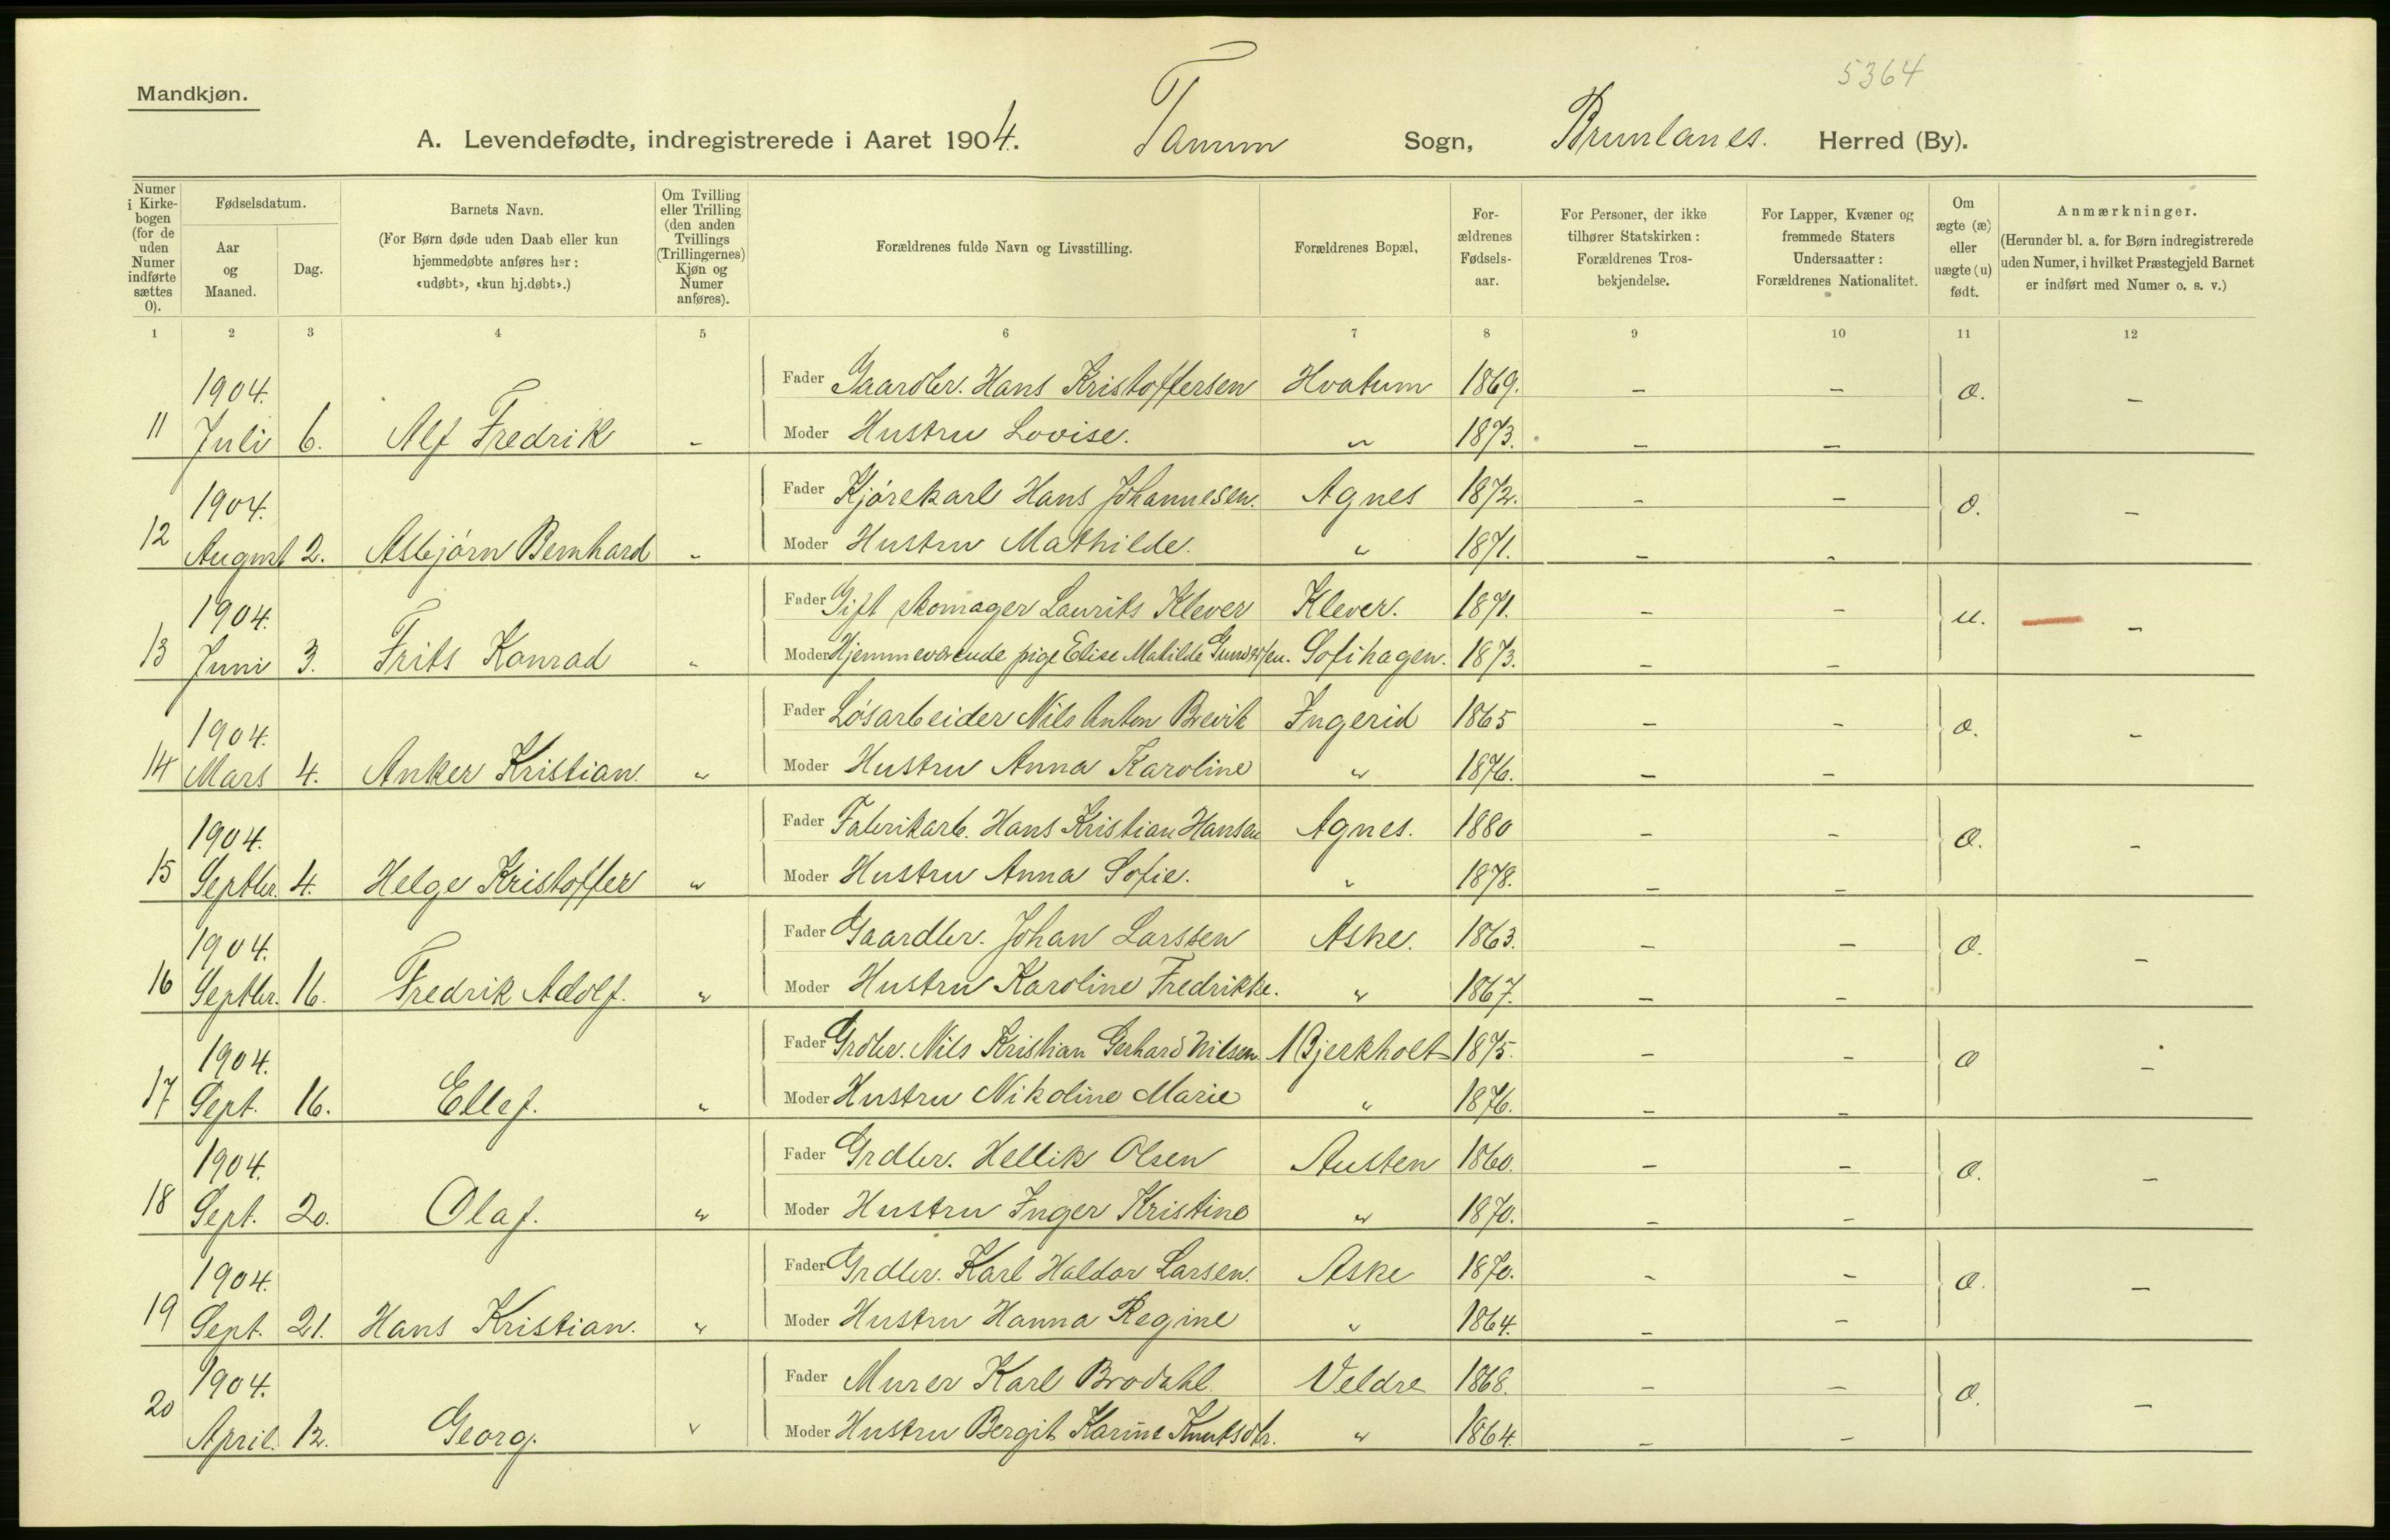 5364
Mandkjøn.
A. Levendefødte, indregistrerede i Aaret 1904. Tanum Sogn, Brunlanes. Herred (By).
Numer i Kirkebogen (for de uden Numer indførte sættes 0).
Fødselsdatum.
Aar og Maaned.
Dag.
Barnets Navn.
(For Børn døde uden Daab eller kun hjemmedøbte anføres her: «udøbt», «kun hj.døbt».)
Om Tvilling eller Trilling (den anden Tvillings (Trillingernes) Kjøn og Numer anføres).
Forældrenes fulde Navn og Livsstilling.
Forældrenes Bopæl,
Forældrenes Fødselsaar.
For Personer, der ikke tilhører Statskirken: Forældrenes Trosbekjendelse.
For Lapper, Kvæner og fremmede Staters Undersaatter: Forældrenes Nationalitet.
Om ægte (æ) eller uægte (u) født.
Anmærkninger.
(Herunder bl. a. for Børn indregistrerede uden Numer, i hvilket Præstegjeld Barnet er indført med Numer o. s. v.)
1 2 3 4 5 6 7 8 9 10 11 12
1904. Fader Gaardbr. Hans Kristoffersen Hvatum 1869. – – æ. –
11 Juli 6. Alf Fredrik - Moder Hustru Lovise. " 1873. – –
1904. Fader Kjørekarl Hans Johannesen. Agnes 1872. – – æ. –
12 August 2. Asbjørn Bernhard - Moder Hustru Mathilde. " 1871. – –
1904. Fader Gift skomager Laurits Klever Klever. 1871. – – u. –
13 Juni 3. Frits Konrad " Moder Hjemmeværende pige Elise Matilde Gundersen. Sofihagen. 1873. – –
1904. Fader Løsarbeider Nils Anton Brevik Ingerid 1865 – – æ. –
14 Mars 4. Anker Kristian. " Moder Hustru Anna Karoline " 1876. – –
1904. Fader Fabrikarb. Hans Kristian Hansen Agnes. 1880 – – æ. –
15 Septbr. 4. Helge Kristoffer " Moder Hustru Anna Sofie. " 1878. – –
1904. Fader Gaardbr. Johan Larssen Aske. 1863. – – æ. –
16 Septbr. 16. Fredrik Adolf. " Moder Hustru Karoline Fredrikke. " 1867. – –
1904. Fader Grdbr. Nils Kristian Gerhard Nilsen Bjerkholt 1875. – – æ –
17 Sept. 16. Ellef. " Moder Hustru Nikoline Marie " 1876. – –
1904. Fader Grdbr. Hellik Olsen Austen 1860. – – æ. –
18 Sept. 20. Olaf. " Moder Hustru Inger Kristine " 1870. – –
1904. Fader Grdbr. Karl Haldor Larsen. Aske 1870. – – æ. –
19 Sept. 21. Hans Kristian. " Moder Hustru Hanna Regine " 1864. – –
1904. Fader Murer Karl Brodahl. Veldre 1868. – – æ. –
20 April. 12. Georg. " Moder Hustru Bergit Karine Knutsdtr. " 1864. – –